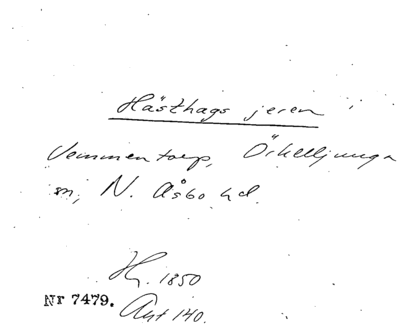 Hästhags jeren
Vemmentorp, Örkelljunga
sn, N. Åsbo hd.
Hg. 1850
Nr 7479. Ant 140.